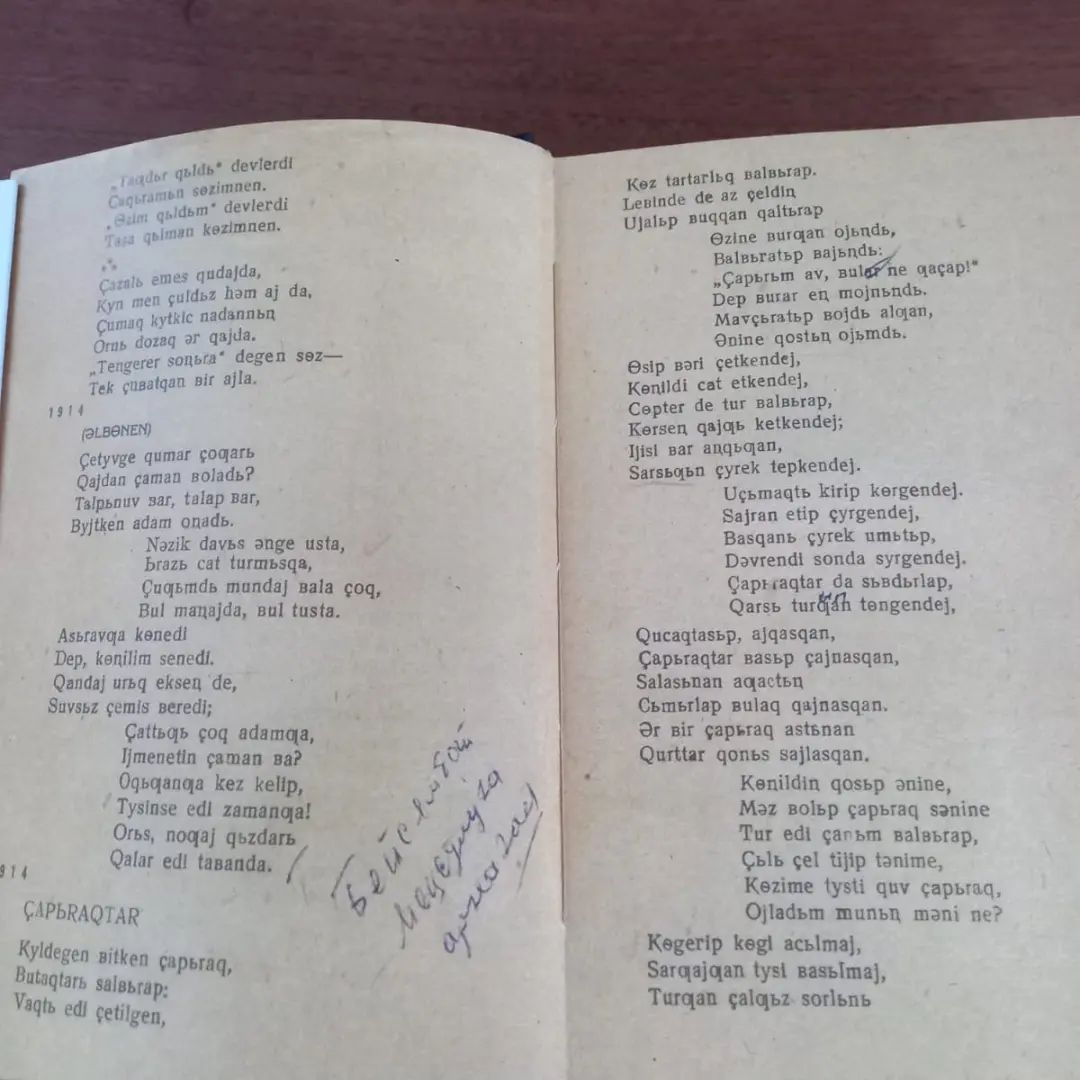 „Taqdьr qьldь“ devlerdi
Çaqьramьn sөzimnen.
„Өzim qьldьm“ devlerdi
Tasa qьlman kөzimnen.
⁂
Çazalь emes qudajda,
Kyn men çuldьz həm aj da,
Çumaq kytkic nadannьꞑ
Ornь dozaq ər qajda.
„Tengerer soꞑьra“ degen sөz—
Tek çuʙatqan ʙir ajla.
1914
(ƏLBӨNEN)
Çetyvge qumar çoƣarь
Qajdan çaman ʙoladь?
Talpьnuv ʙar, talap ʙar,
Byjtken adam oꞑadь.
Nəzik davьs ənge usta,
Ьrazь cat turmьsqa,
Çuƣьmdь mundaj ʙala çoq,
Bul maꞑajda, ʙul tusta.
Asьravƣa kөnedi
Dep, kөꞑilim senedi.
Qandaj urьq ekseꞑ de,
Suvsьz çemis ʙeredi;
Çattьƣь çoq adamƣa,
Ijmenetin çaman ʙa?
Oƣьƣanƣa kez kelip,
Tysinse edi zamanƣa!
Orьs, noƣaj qьzdarь
Qalar edi taʙanda.
914
ÇAPЬRAQTAR
Kyldegen ʙitken çapьraq,
Butaqtarь salʙьrap:
Vaqtь edi çetilgen,
Kөz tartarlьq ʙalʙьrap.
Leʙinde de az çeldiꞑ
Ujalьp ʙuƣƣan qaltьrap
Өzine ʙurƣan ojьꞑdь,
Balʙьratьp ʙajьꞑdь:
„Çapьrьm av, ʙular ne qaçap!“
Dep ʙurar eꞑ mojnьꞑdь.
Mavçьratьp ʙojdь alƣan,
Өnine qostьꞑ ojьmdь.
Өsip ʙəri çetkendej,
Kөꞑildi cat etkendej,
Cөpter de tur ʙalʙьrap,
Kөrseꞑ qajƣь ketkendej;
Ijisi ʙar aꞑqьƣan,
Sarsьƣьn çyrek tepkendej.
Uçьmaqtь kirip kөrgendej.
Sajran etip çyrgendej,
Basqanь çyrek umьtьp,
Dəvrendi sonda syrgendej.
Çapьraqtar da sьʙdьrlap,
Qarsь turƣan tөngendej,
Qucaqtasьp, ajqasqan,
Çapьraqtar ʙasьp çajnasqan,
Salasьnan aƣactьꞑ
Cьmьrlap ʙulaq qajnasqan.
Ər ʙir çapьraq astьnan
Qurttar qonьs sajlasqan.
Kөꞑildin qosьp ənine,
Məz ʙolьp çapьraq sənine
Tur edi çanьm ʙalʙьrap,
Çьlь çel tijip tənime,
Kөzime tysti quv çapьraq,
Ojladьm munьꞑ məni ne?
Kөgerip kөgi acьlmaj,
Sarƣajƣan tysi ʙasьlmaj,
Turƣan çalƣьz sorlьnь